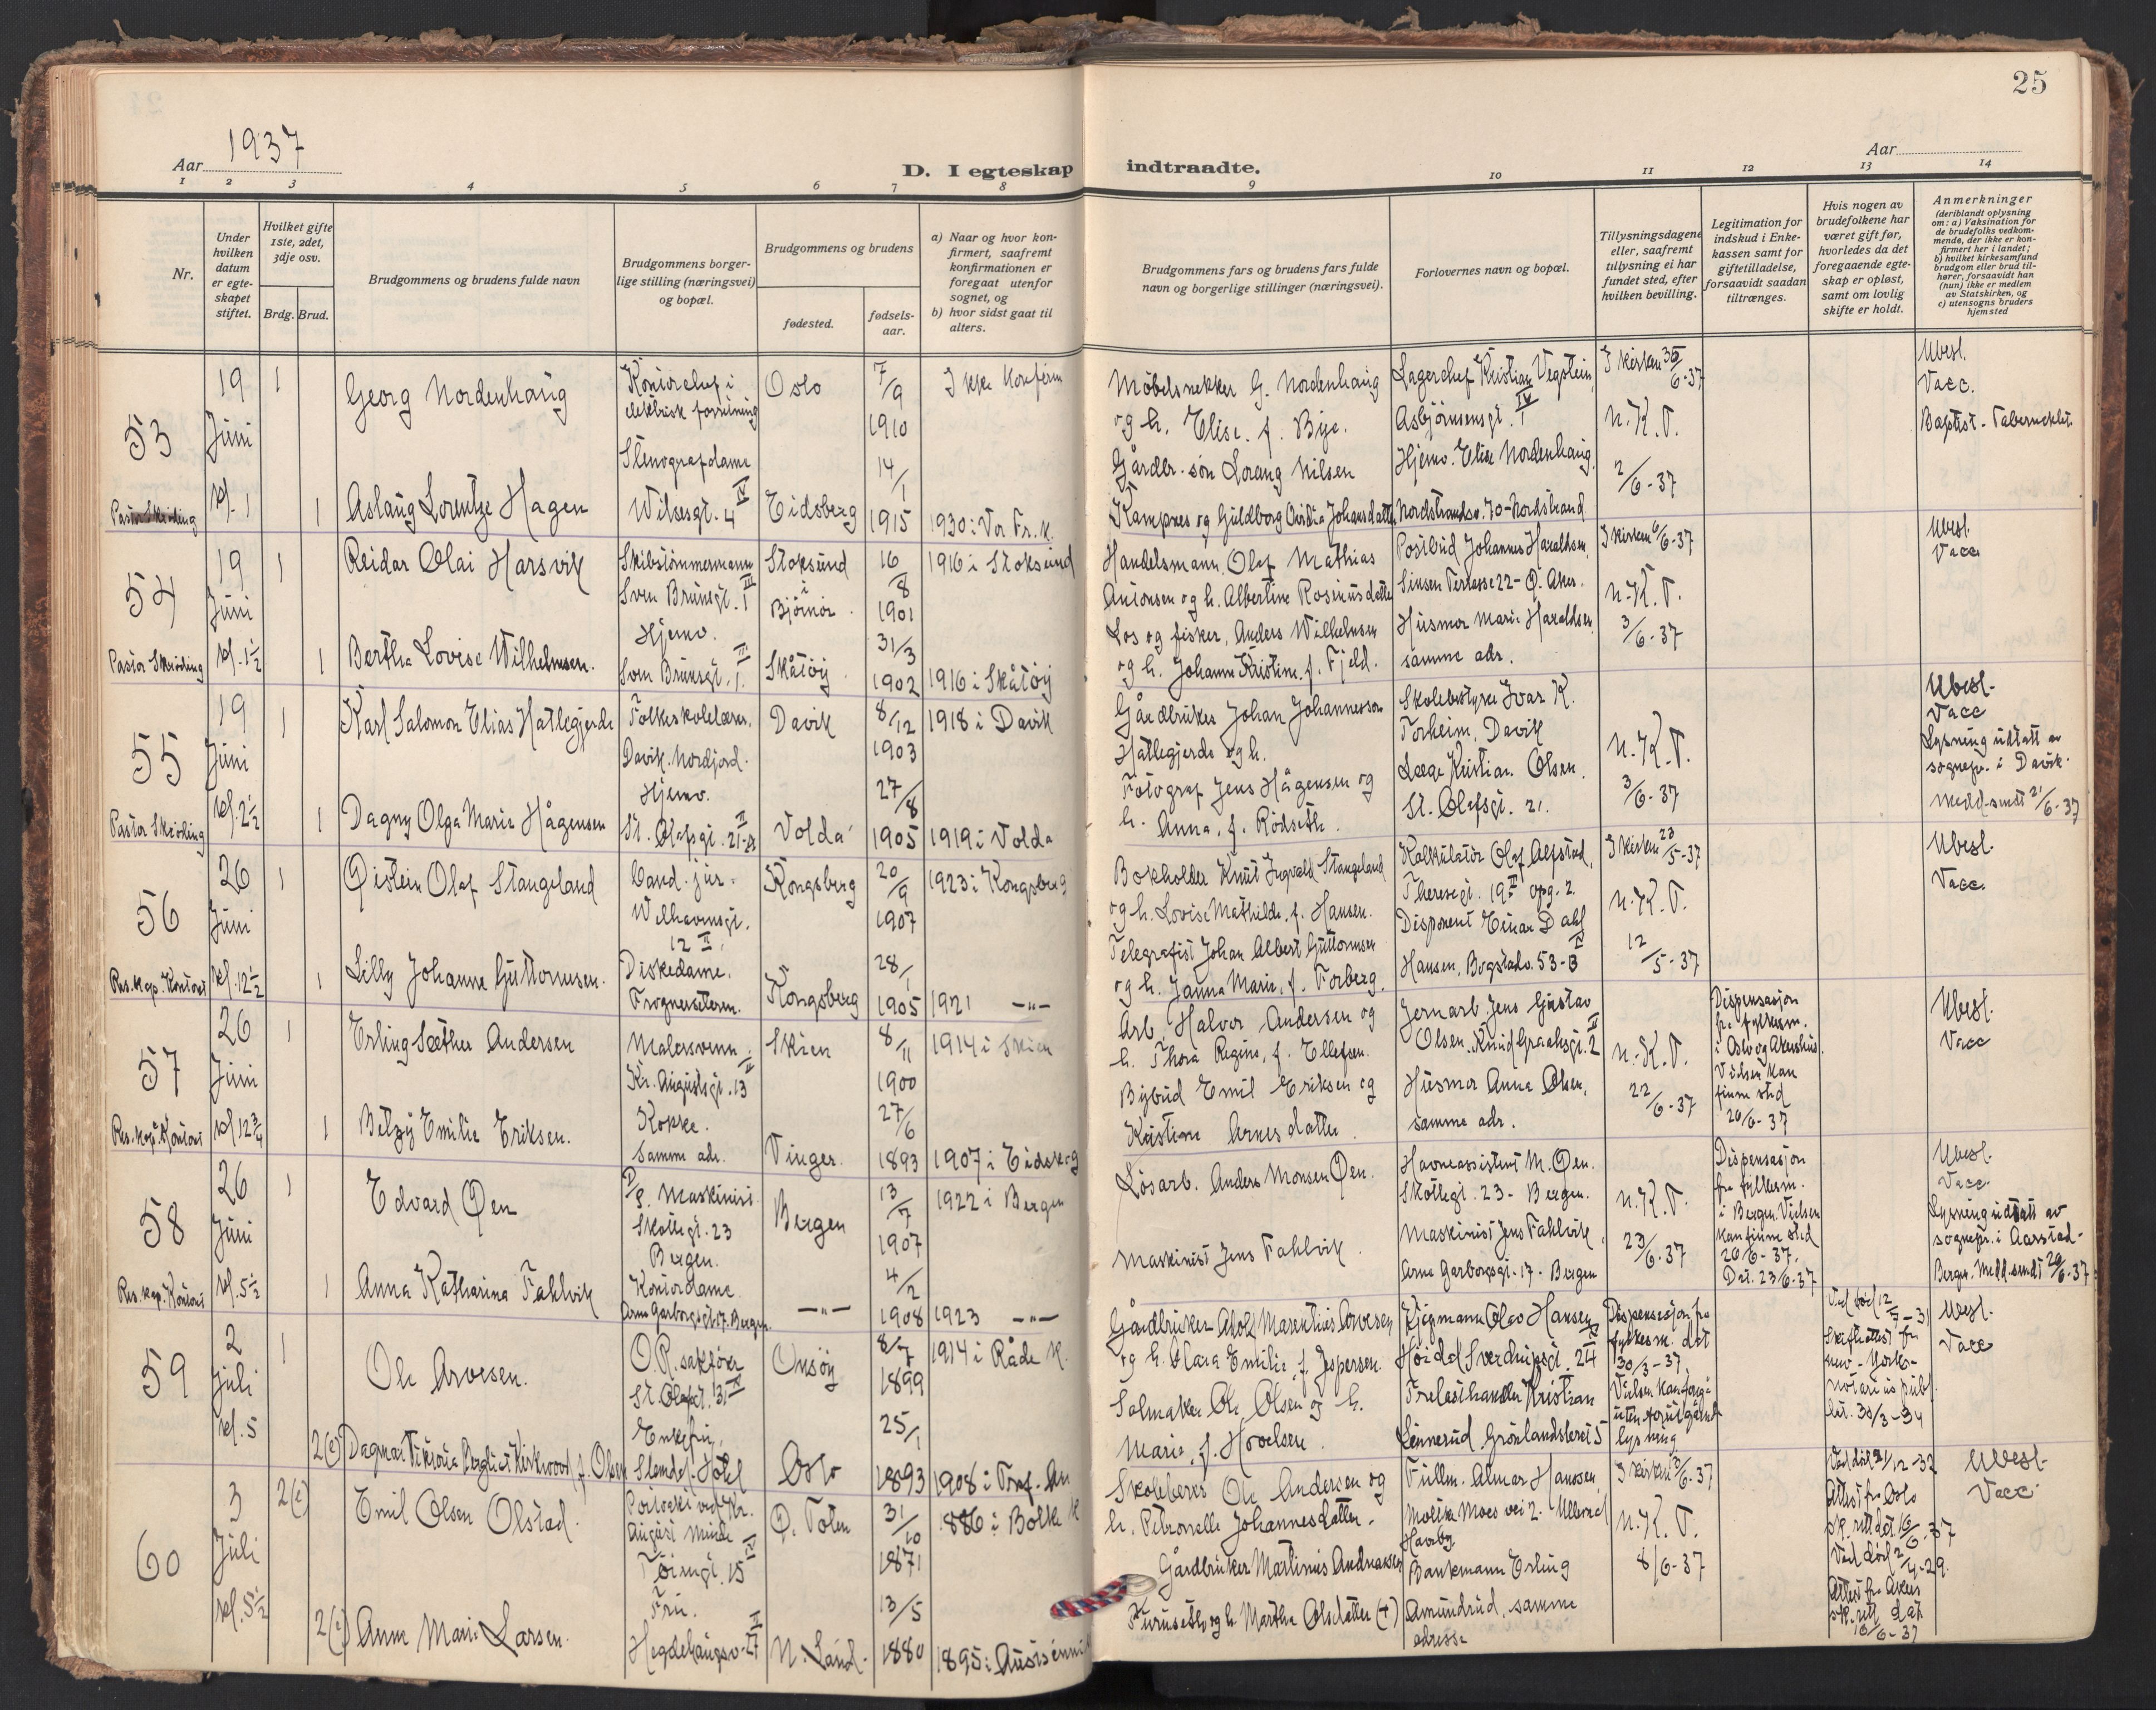 25
Aar 1937
Aar
D. I egteskap indtraadte.
1 2 3 4 5 6 7 8 9 10 11 12 13 14
Nr.
Under hvilken datum er egte-skapet stiftet.
Hvilket gifte 1ste, 2det, 3dje osv.
Brdg. Brud.
Brudgommens og brudens fulde navn
Brudgommens borger-lige stilling (næringsvei) og bopæl.
Brudgommens og brudens
fødested.
fødsels-aar.
a) Naar og hvor kon-firmert, saafremt konfirmationen er foregaat utenfor sognet, og
b) hvor sidst gaat til alters.
Brudgommens fars og brudens fars fulde navn og borgerlige stillinger (næringsvei).
Forlovernes navn og bopæl.
Tillysningsdagene eller, saafremt tillysning ei har fundet sted, efter hvilken bevilling.
Legitimation for indskud i Enke-kassen samt for giftetilladelse, forsaavidt saadan tiltrænges.
Hvis nogen av brudefolkene har været gift før, hvorledes da det foregaaende egte-skap er opløst, samt om lovlig skifte er holdt.
Anmerkninger
(deriblandt oplysning om: a) Vaksination for de brudefolks vedkom-mende, der ikke er kon-firmert her i landet; b) hvilket kirkesamfund brudgom eller brud til-hører, forsaavidt han (hun) ikke er medlem av Statskirken, og c) utensogns bruders hjemsted
53
19 Juni kl. 1
1
Georg Nordenhaug
Kontorchef i elektrisk forretning
Oslo
7/9 1910
Ikke konfirm
Møbelsnekker G. Nordenhaug
og h. Elise f. Bye.
Lagerchef Kristian Vegstein,
Asbjørnsensgt. 1 IV
I kirken 6-37
N.K.T.
2/6-37
Ubesl.
Vacc.
Baptist-Tabernaklet.
1
Aslaug Lorentze Hagen
Stenografdame
Wilsesgt. 4 IV
Eidsberg
14/1 1915
1930 i Vor Fr. k.
Gårdbr. søn Lorang Nilsen
Kampnes og Guldborg Johansdatter
Hjemv. Elise Nordenhaug,
Nordstrandsv. 70 - Nordstrand
54
19 Juni kl. 1½
Pastor Skrøding
1
Reidar Olai Harsvik
Skibstømmermann
Sven Brunsgt. 1 III
Stoksund i Bjørnør.
16/8 1901
1916 i Stoksund
Handelsmann Olaf Mathias
Antonsen og h. Albertine Rosinusdatter
Postbud Johannes Haraldsen,
Sinsen Terrasse 22 - Ø. Aker.
I kirken 6/6-37
N.K.T.
3/6-37
Ubesl.
Vacc
1
Bertha Lovise Wilhelmsen.
Hjemv.
Sven Brunsgt. 1. III
Skåtøy
31/3 1902
1916 i Skåtøy
Los og fisker, Anders Wilhelmsen
og h. Johanne Kristine, f. Fjeld.
Husmor Marie Haraldsen,
samme adr.
55
19 Juni kl. 2½
Pastor Skrøding
1
Karl Salomon Elias Hatlegjerde
Folkeskolelærer,
Davik. Nordfjord.
Davik
8/12 1903
1918 i Davik
Gårdbruker Johan Johannesson
Hatlegjerde og h.
Skolebestyrer Ivar K.
Torheim, Davik
N.K.T.
3/6-37
Ubesl.
Vacc
Lysning utstatt av sognepr. i Davik.
Medd. sendt 21/6-37
1
Dagny Olga Marie Hågensen
Hjemv.
St. Olafsgt. 21 II
Volda
27/8 1905
1919 i Volda
Fotograf Jens Hågensen og
h. Anna, f. Rödseth.
Læge Kristian Olsen.
St. Olafsgt. 21.
56
26 Juni kl. 12½
Res. kap. Kontoret
1
Øistein Olaf Stangeland
Cand. jur.
Welhavensgt. 12 II,
Kongsberg
20/9 1907
1923 i Kongsberg
Bokholder Knut Ingvald Stangeland
og h. Lovise Mathilde, f. Hansen.
Kalkulatør Olaf Alfstad,
Theresegt. 19 opg. 2.
I kirken 23/5-37
N.K.T.
12/5-37
Ubesl.
Vacc.
1
Lilly Johanne Guttormsen.
Diskedame,
Frognerseteren.
Kongsberg
28/1 1905
1921 -"-
Telegrafist Johan Albert Guttormsen
og h. Janna Marie, f. Forberg.
Disponent Einar Dahl
Hansen, Bogstadv. 53-B
57
26 Juni kl 12¾
Res. kap. Kontoret
1
Erling Sæther Andersen
Malersvenn,
Kr. Augustsgt. 13
Skien
8/11 1900
1914 i Skien
Arb. Halvor Andersen og
h. Thora Regine, f. Ellefsen.
Jernarb. Jens Gustav
Olsen. Knud Graahsgt. 2
N.K.T.
22/6-37
Dispensasjon fra fylkesm. i Oslo og Akershus. Vielsen kan finne sted 26/6-37
Ubesl.
Vacc
1
Betzy Emilie Eriksen.
Kokke.
Samme adr.
Vinger.
27/6 1893
1907 i Eidskog
Bybud Emil Eriksen og
Kristine Arnesdatter.
Husmor Anna Olsen,
samme adr.
58
26 Juni kl. 5½
Res. kap. Kontoret
1
Edvard Øen
Maskinist
Skottegt. 23
Bergen.
Bergen
13/7 1907
1922 i Bergen
Løsarb. Anders Monsen Øen.
Havneassistent M. Øen.
Skottegt. 23 - Bergen.
N.K.T.
23/6-37
Dispensasjon fra fylkesm. i Bergen. Vielsen kan finne sted 26/6-37. Dat. 23/6-37
Ubesl.
Vacc
Lysning utstatt av sognepr. i Aarstad - Bergen. Medd. sendt 29/6-37
1
Anna Katharina Fahlvik
Kontordame.
Arne Garborgsgt. 17. Bergen.
-"-
4/2 1908
1923 -"-
Maskinist Jens Fahlvik.
Maskinist Jens Fahlvik,
Arne Garborgsgt. 17. Bergen
59
2 Juli kl. 5
1
Ole Arvesen.
O.R. sakfører
St. Olafsgt. 31 IV
Onsøy
8/7 1899
1914 i Råde k.
Gårdbruker Adolf Marentius Arvesen
og h. Klara Emilie, f. Jespersen.
Olav Hansen,
Sverdrupsgt. 24
Dispensasjon fra fylkesm. dat 30/3-37. Vielsen kan foregå uten forutgående lysning
Ved død 12/7-31
Skifteattest fra New-York- notarius publ. dat. 30/3-34
Ubesl.
Vacc
2(e)
Dagmar Viktoria Kirkwood f. Olsen
Enkefru,
Slemdal Hotel
Oslo
25/1 1893
1908 i Tref.
Salmaker Ole Olsen og h.
Marie, f. Hoelsen.
Kristian
Lennerud Grønlandsleret 5
60
3 Juli kl. 5½
2(e)
Emil Olsen Olstad.
August Minde
Tøiengt. 15 IV
Ø. Toten
31/10 1871
1886 i Bolk k
Skolelærer Ole Andersen og
h. Petronelle Johannesdatter.
Fullm. Almar Hanssen,
Moltke Moes vei 2. Ullevål Haveby
I kirken 13/6-37
N.K.T.
8/6-37
Ved död 31/12-32
Attest fra Oslo sk.rett dat. 16/6-37
Ubesl.
Vacc.
2(e)
Anne Marie Larsen.
Fru.
Hegdehaugsv. 27 II
N. Land.
13/5 1880
1895 i
Gårdbruker Martinius Andreassen
Furuseth og h. Marthe Olsdatter (+)
Bankmann Erling
Amundrud, samme
adresse
Ved död 2/4-29.
Attest fra Akers sk.rett dat. 16/6-37